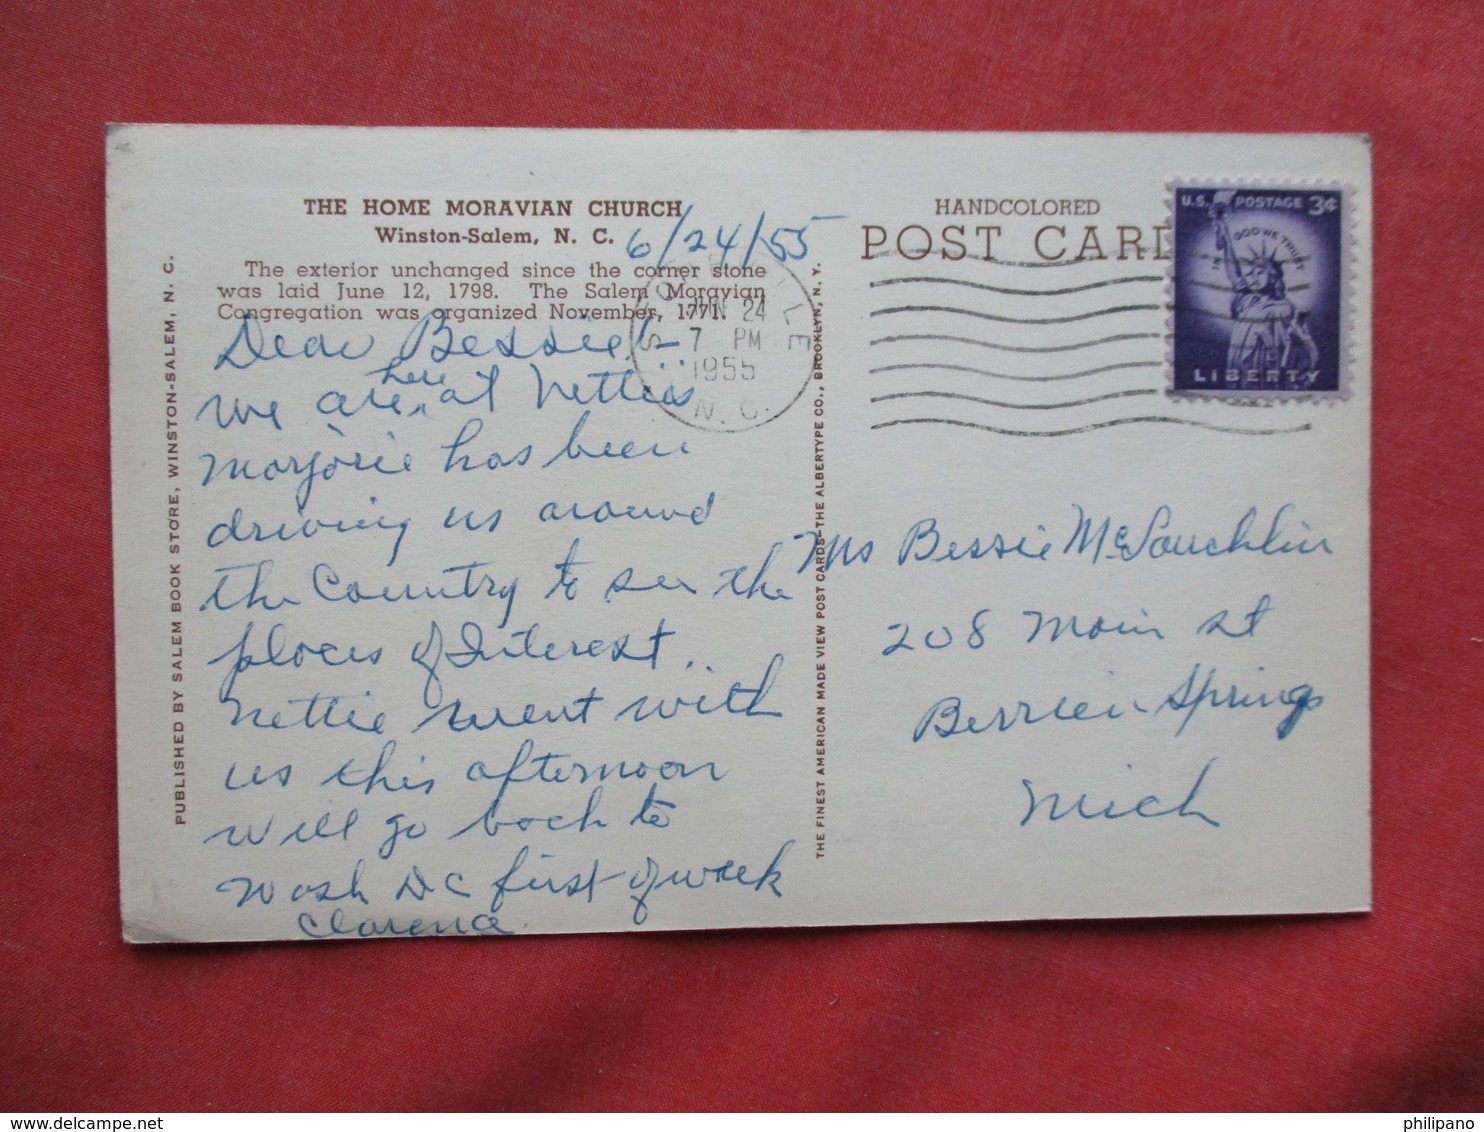 THE HOME MORAVIAN CHURCH
Winston-Salem, N. C.
6/24/55
The exterior unchanged since the corner stone
was laid June 12, 1798. The Salem Moravian
Congregation was organized November, 1771.
PUBLISHED BY SALEM BOOK STORE, WINSTON-SALEM, N. C.
Dear Bessie:-
we are here at Nettie's
Marjorie has been
driving us around
the Country to see the
places of Interest..
Nettie went with
us this afternoon
will go back to
Wash DC first of week
Clarence
THE FINEST AMERICAN MADE VIEW POST CARDS—THE ALBERTYPE CO., BROOKLYN, N. Y.
JUN 24
7 PM
1955
N. C.
HANDCOLORED
POST CARD
U.S. POSTAGE 3¢
IN GOD WE TRUST
LIBERTY
Ms Bessie McLauchlin
208 Main st
Berrien Springs
Mich
philipano